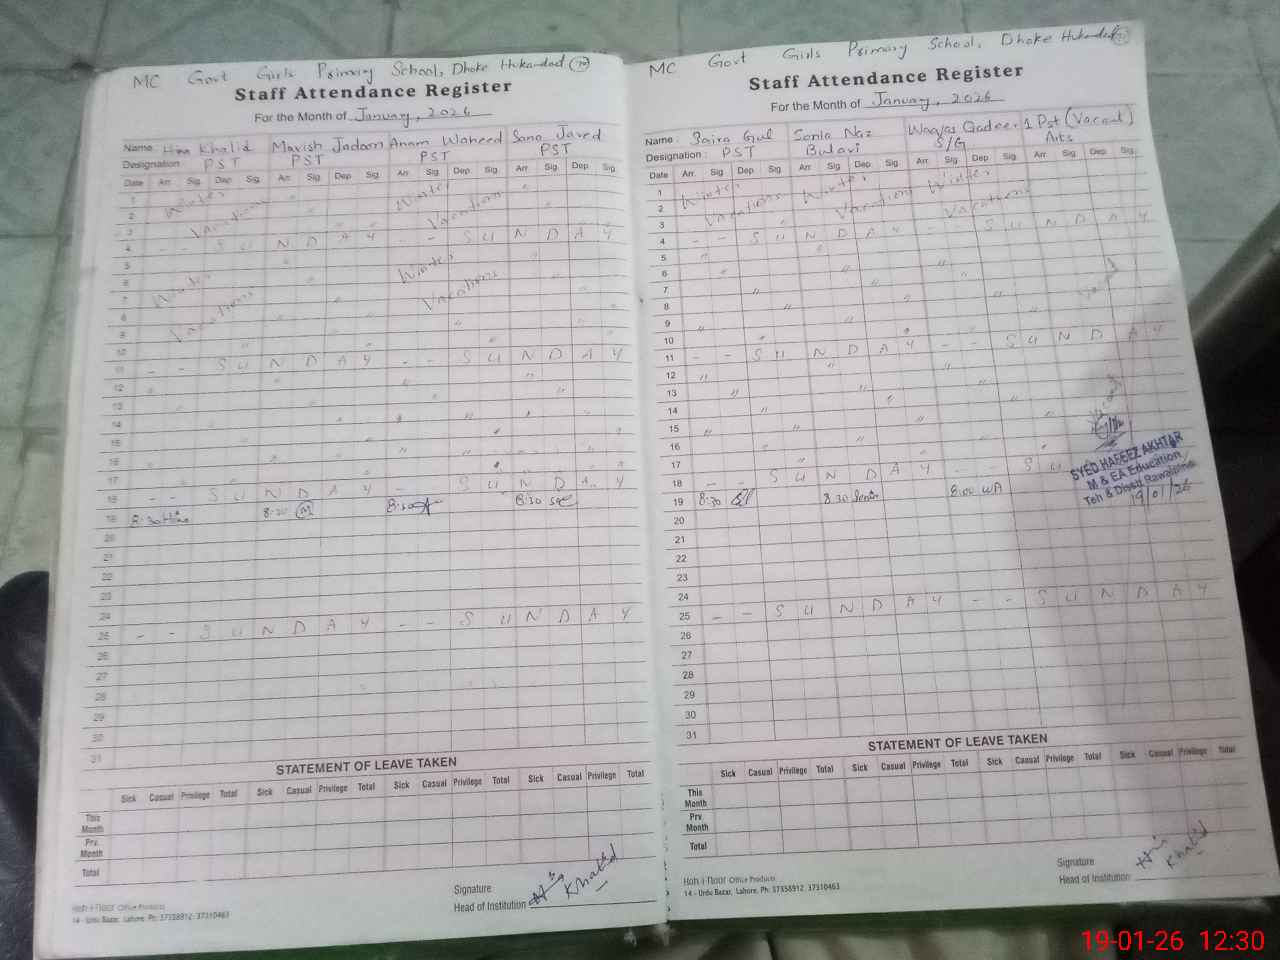 MC Govt Girls Primary School, Dhoke Hukamdad
Staff Attendance Register
For the Month of January, 2026
Name: Hina Khalid Mavish Jadoon Anam Waheed Sana Javed
Designation PST PST PST PST
Date Arr. Sig. Dep Sig. Arr. Sig. Dep Sig. Arr Sig. Dep. Sig. Arr Sig. Dep. Sig.
1 Winter Winter
2 Vacations Vacations
3
4 - - S U N D A Y - - S U N D A Y
5 Winter
6 Winter
7 Vacations
8 Vacations
9
10
11 - - S U N D A Y - - S U N D A Y
12
13
14
15
16
17
18 - - S U N D A Y - - S U N D A Y
19 8:30 Hina 8:20 M 8:30 8:30
20
21
22
23
24
25 - - S U N D A Y - - S U N D A Y
26
27
28
29
30
31
STATEMENT OF LEAVE TAKEN
Sick Casual Privilege Total Sick Casual Privilege Total Sick Casual Privilege Total Sick Casual Privilege Total
This Month
Prv. Month
Total
Signature
Head of Institution Hina Khalid
Office Products
14 - Urdu Bazar, Lahore. Ph: 37358912, 37310463
MC Govt Girls Primary School, Dhoke Hukamdad
Staff Attendance Register
For the Month of January, 2026
Name: Zaira Gul Sonia Naz Waqas Qadeer 1 Post (Vacant)
Designation: PST Bulavi S/G Arts
Date Arr. Sig. Dep Sig. Arr. Sig. Dep Sig. Arr Sig. Dep Sig. Arr Sig. Dep. Sig.
1 Winter Winter Winter
2 Vacations Vacations Vacations
3
4 - - S U N D A Y - - S U N D A Y
5
6
7
8
9
10
11 - - S U N D A Y - - S U N D A Y
12
13
14
15
16
17
18 - - S U N D A Y - - S U
19 8:30 8:30 Sonia 8:00 WA
SYED HAFEEZ AKHTAR
M & EA Education
Teh & Distt Rawalpindi
19/01/26
20
21
22
23
24
25 - - S U N D A Y - - S U N D A Y
26
27
28
29
30
31
STATEMENT OF LEAVE TAKEN
Sick Casual Privilege Total Sick Casual Privilege Total Sick Casual Privilege Total Sick Casual Privilege Total
This Month
Prv. Month
Total
Signature
Head of Institution Hina Khalid
Office Products
14 - Urdu Bazar, Lahore. Ph: 37358912, 37310463
19-01-26 12:30